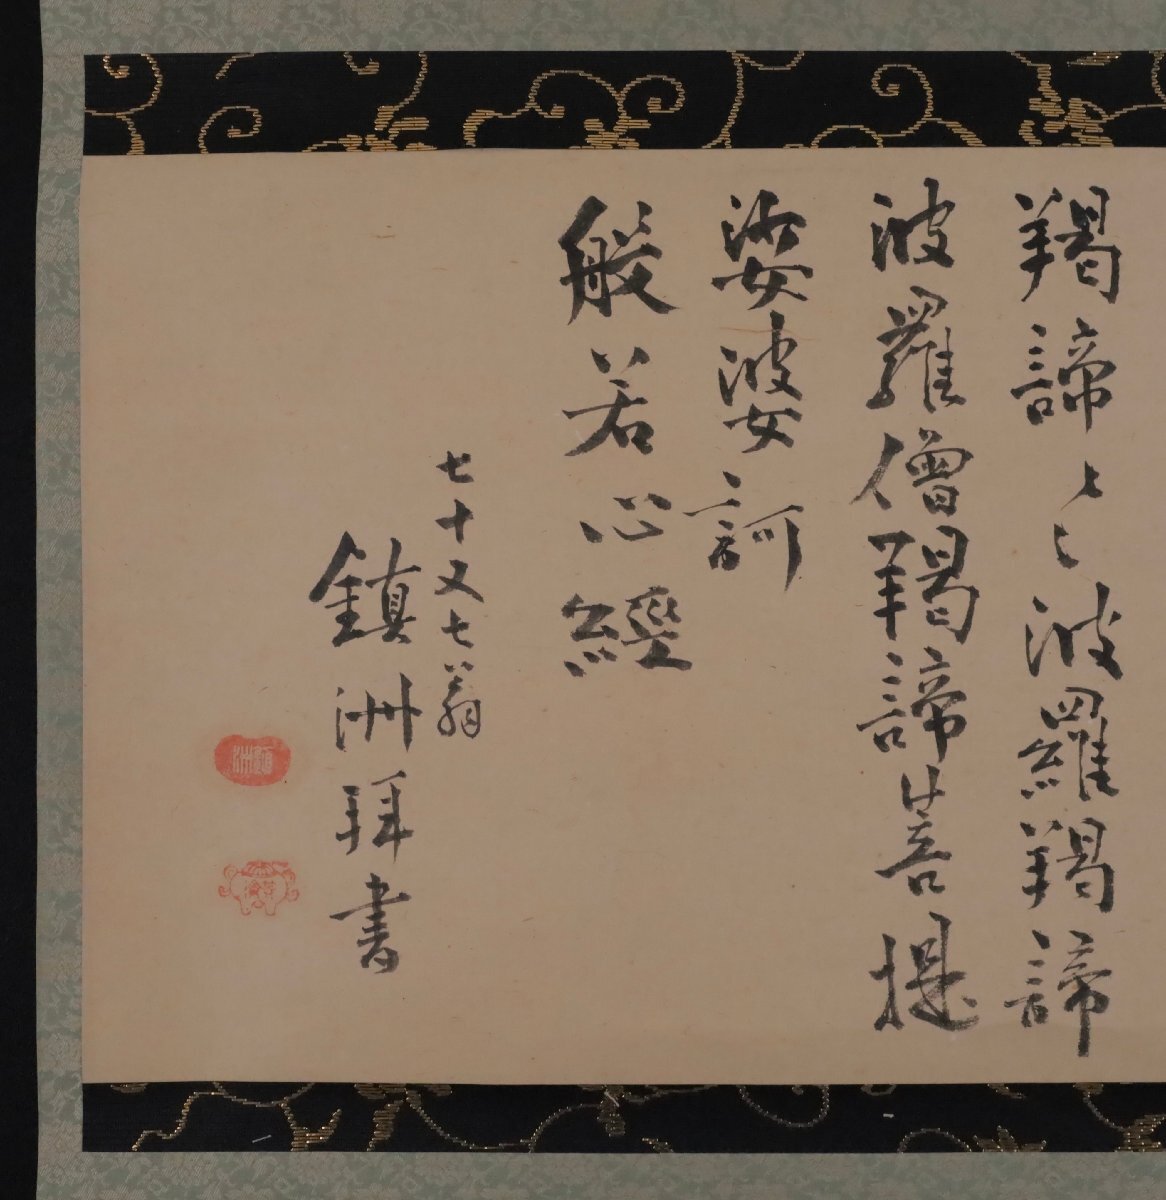 羯諦〻〻波羅羯諦
波羅僧羯諦菩提
娑婆訶
般若心經
七十又七翁
鎮洲拜書
鎮洲